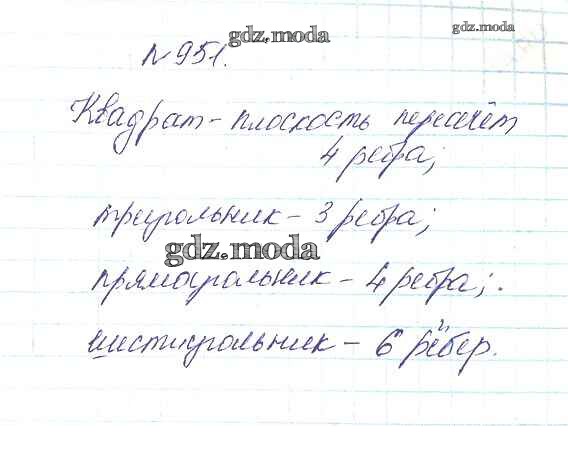 gdz.moda
gdz.moda
№951.
Квадрат - плоскость пересечёт
4 ребра;
треугольник - 3 ребра;
gdz.moda
прямоугольник - 4 ребра;
шестиугольник - 6 рёбер.